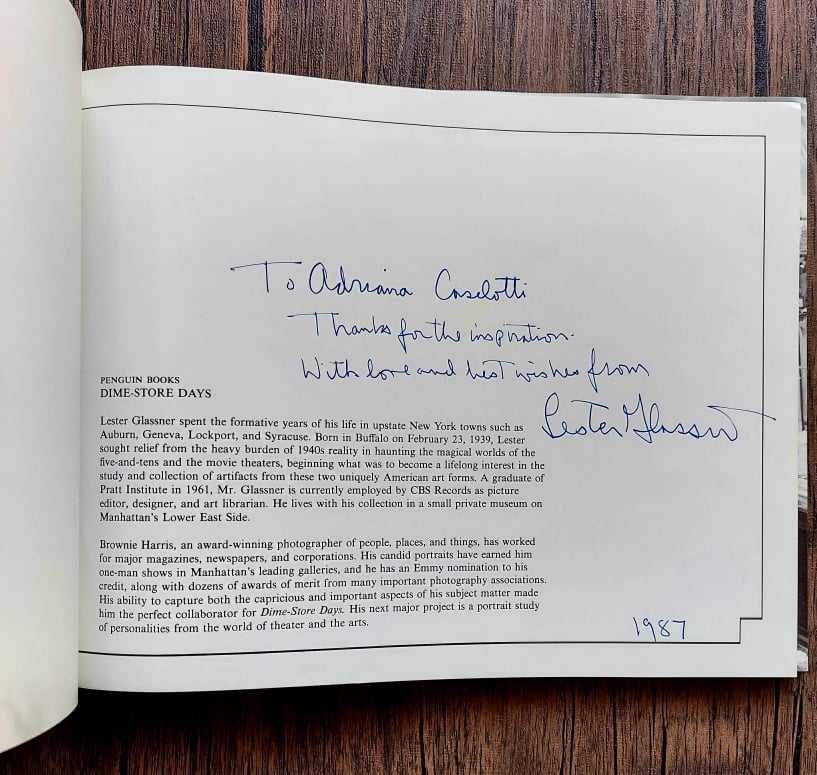 To Adriana Caselotti
Thanks for the inspiration.
With love and best wishes from
Lester Glassner
PENGUIN BOOKS
DIME-STORE DAYS
Lester Glassner spent the formative years of his life in upstate New York towns such as
Auburn, Geneva, Lockport, and Syracuse. Born in Buffalo on February 23, 1939, Lester
sought relief from the heavy burden of 1940s reality in haunting the magical worlds of the
five-and-tens and the movie theaters, beginning what was to become a lifelong interest in the
study and collection of artifacts from these two uniquely American art forms. A graduate of
Pratt Institute in 1961, Mr. Glassner is currently employed by CBS Records as picture
editor, designer, and art librarian. He lives with his collection in a small private museum on
Manhattan's Lower East Side.
Brownie Harris, an award-winning photographer of people, places, and things, has worked
for major magazines, newspapers, and corporations. His candid portraits have earned him
one-man shows in Manhattan's leading galleries, and he has an Emmy nomination to his
credit, along with dozens of awards of merit from many important photography associations.
His ability to capture both the capricious and important aspects of his subject matter made
him the perfect collaborator for Dime-Store Days. His next major project is a portrait study
of personalities from the world of theater and the arts.
1987